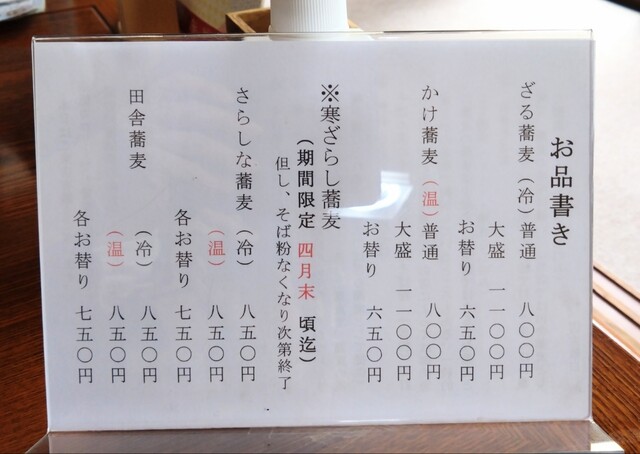 お品書き
ざる蕎麦（冷）普通　八〇〇円
大盛　一一〇〇円
お替り　六五〇円
かけ蕎麦（温）普通　八〇〇円
大盛　一一〇〇円
お替り　六五〇円
※寒ざらし蕎麦
（期間限定 四月末 頃迄）
但し、そば粉なくなり次第終了
さらしな蕎麦（冷）　八五〇円
（温）　八五〇円
各お替り　七五〇円
田舎蕎麦　（冷）　八五〇円
（温）　八五〇円
各お替り　七五〇円